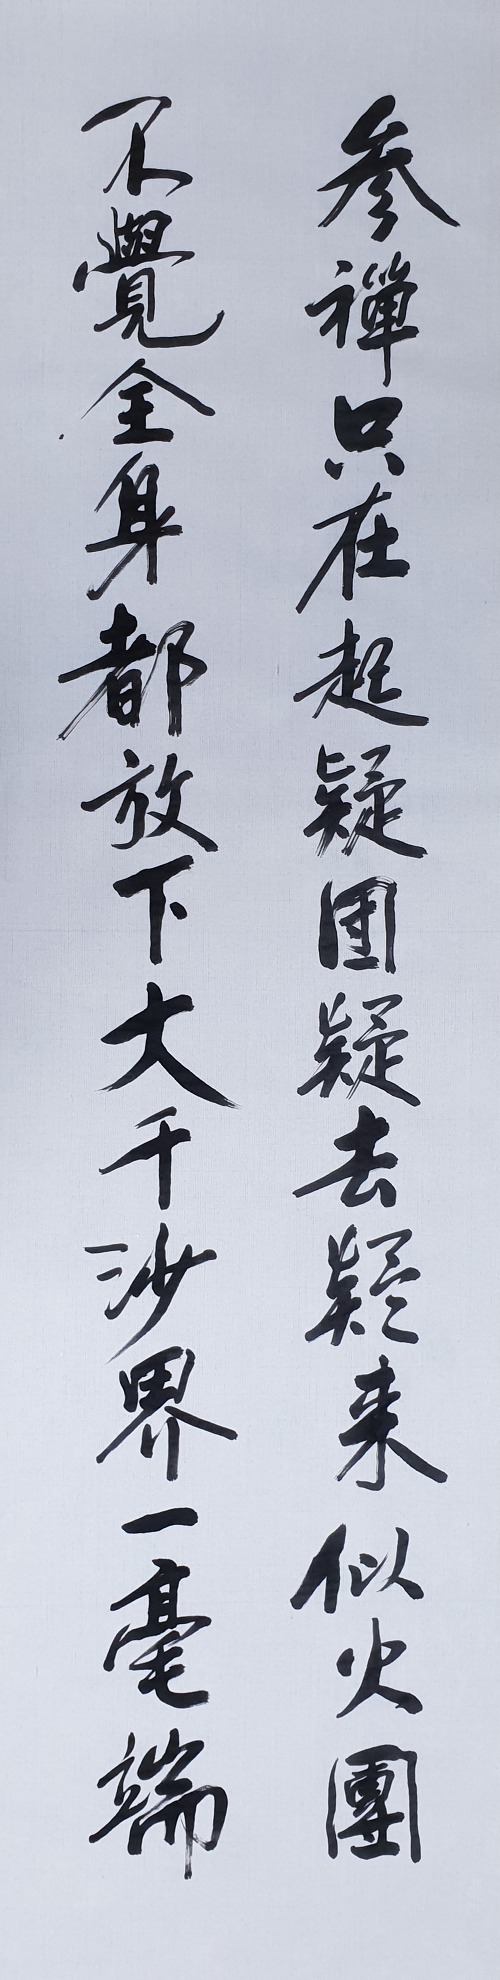 参禪只在起疑团疑去疑来似火團
不覺全身都放下大千沙界一毫端